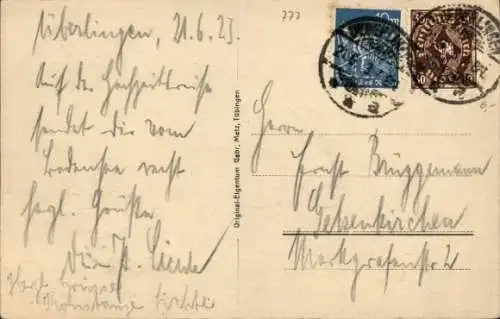 Überlingen, 21.6.23.
Auf der Hochzeitsreise
sendet dir vom
Bodensee recht
herzl. Grüße
Dein
777
10m
Original-Eigentum Gebr. Metz, Tübingen
Herrn
Ernst Brüggemann
Gelsenkirchen
Markgrafenstr 2